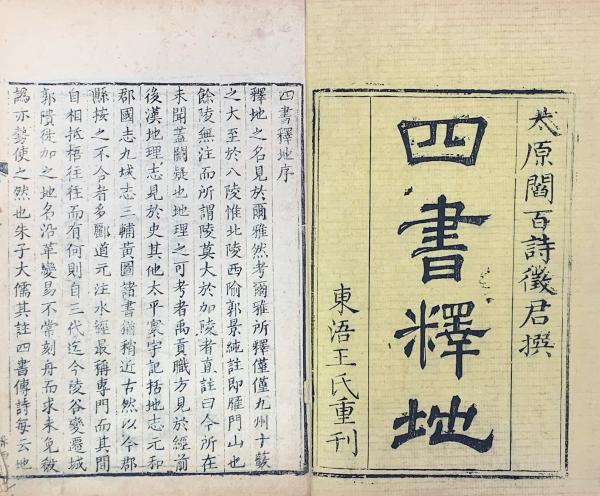 太原閻百詩徵君撰
四書釋地
東浯王氏重刊
四書釋地序
釋地之名見於爾雅然考爾雅所釋僅僅九州十藪
之大至於八陵惟北陵西隃郭景純註即雁門山也
餘陵無注而所謂陵莫大於加陵者直註曰今所在
未聞蓋闕疑也地理之可考者禹貢職方見於經前
後漢地理志見於史其他太平寰宇記括地志元和
郡國志九域志三輔黃圖諸書猶稍近古然以今郡
縣按之不合者多酈道元注水經最稱專門而其間
自相抵梧往往而有何則自三代迄今陵谷變遷城
郭隤徙加之地名沿革變易不常刻舟而求未免毀
譌亦勢使之然也朱子大儒其註四書傳詩每云地